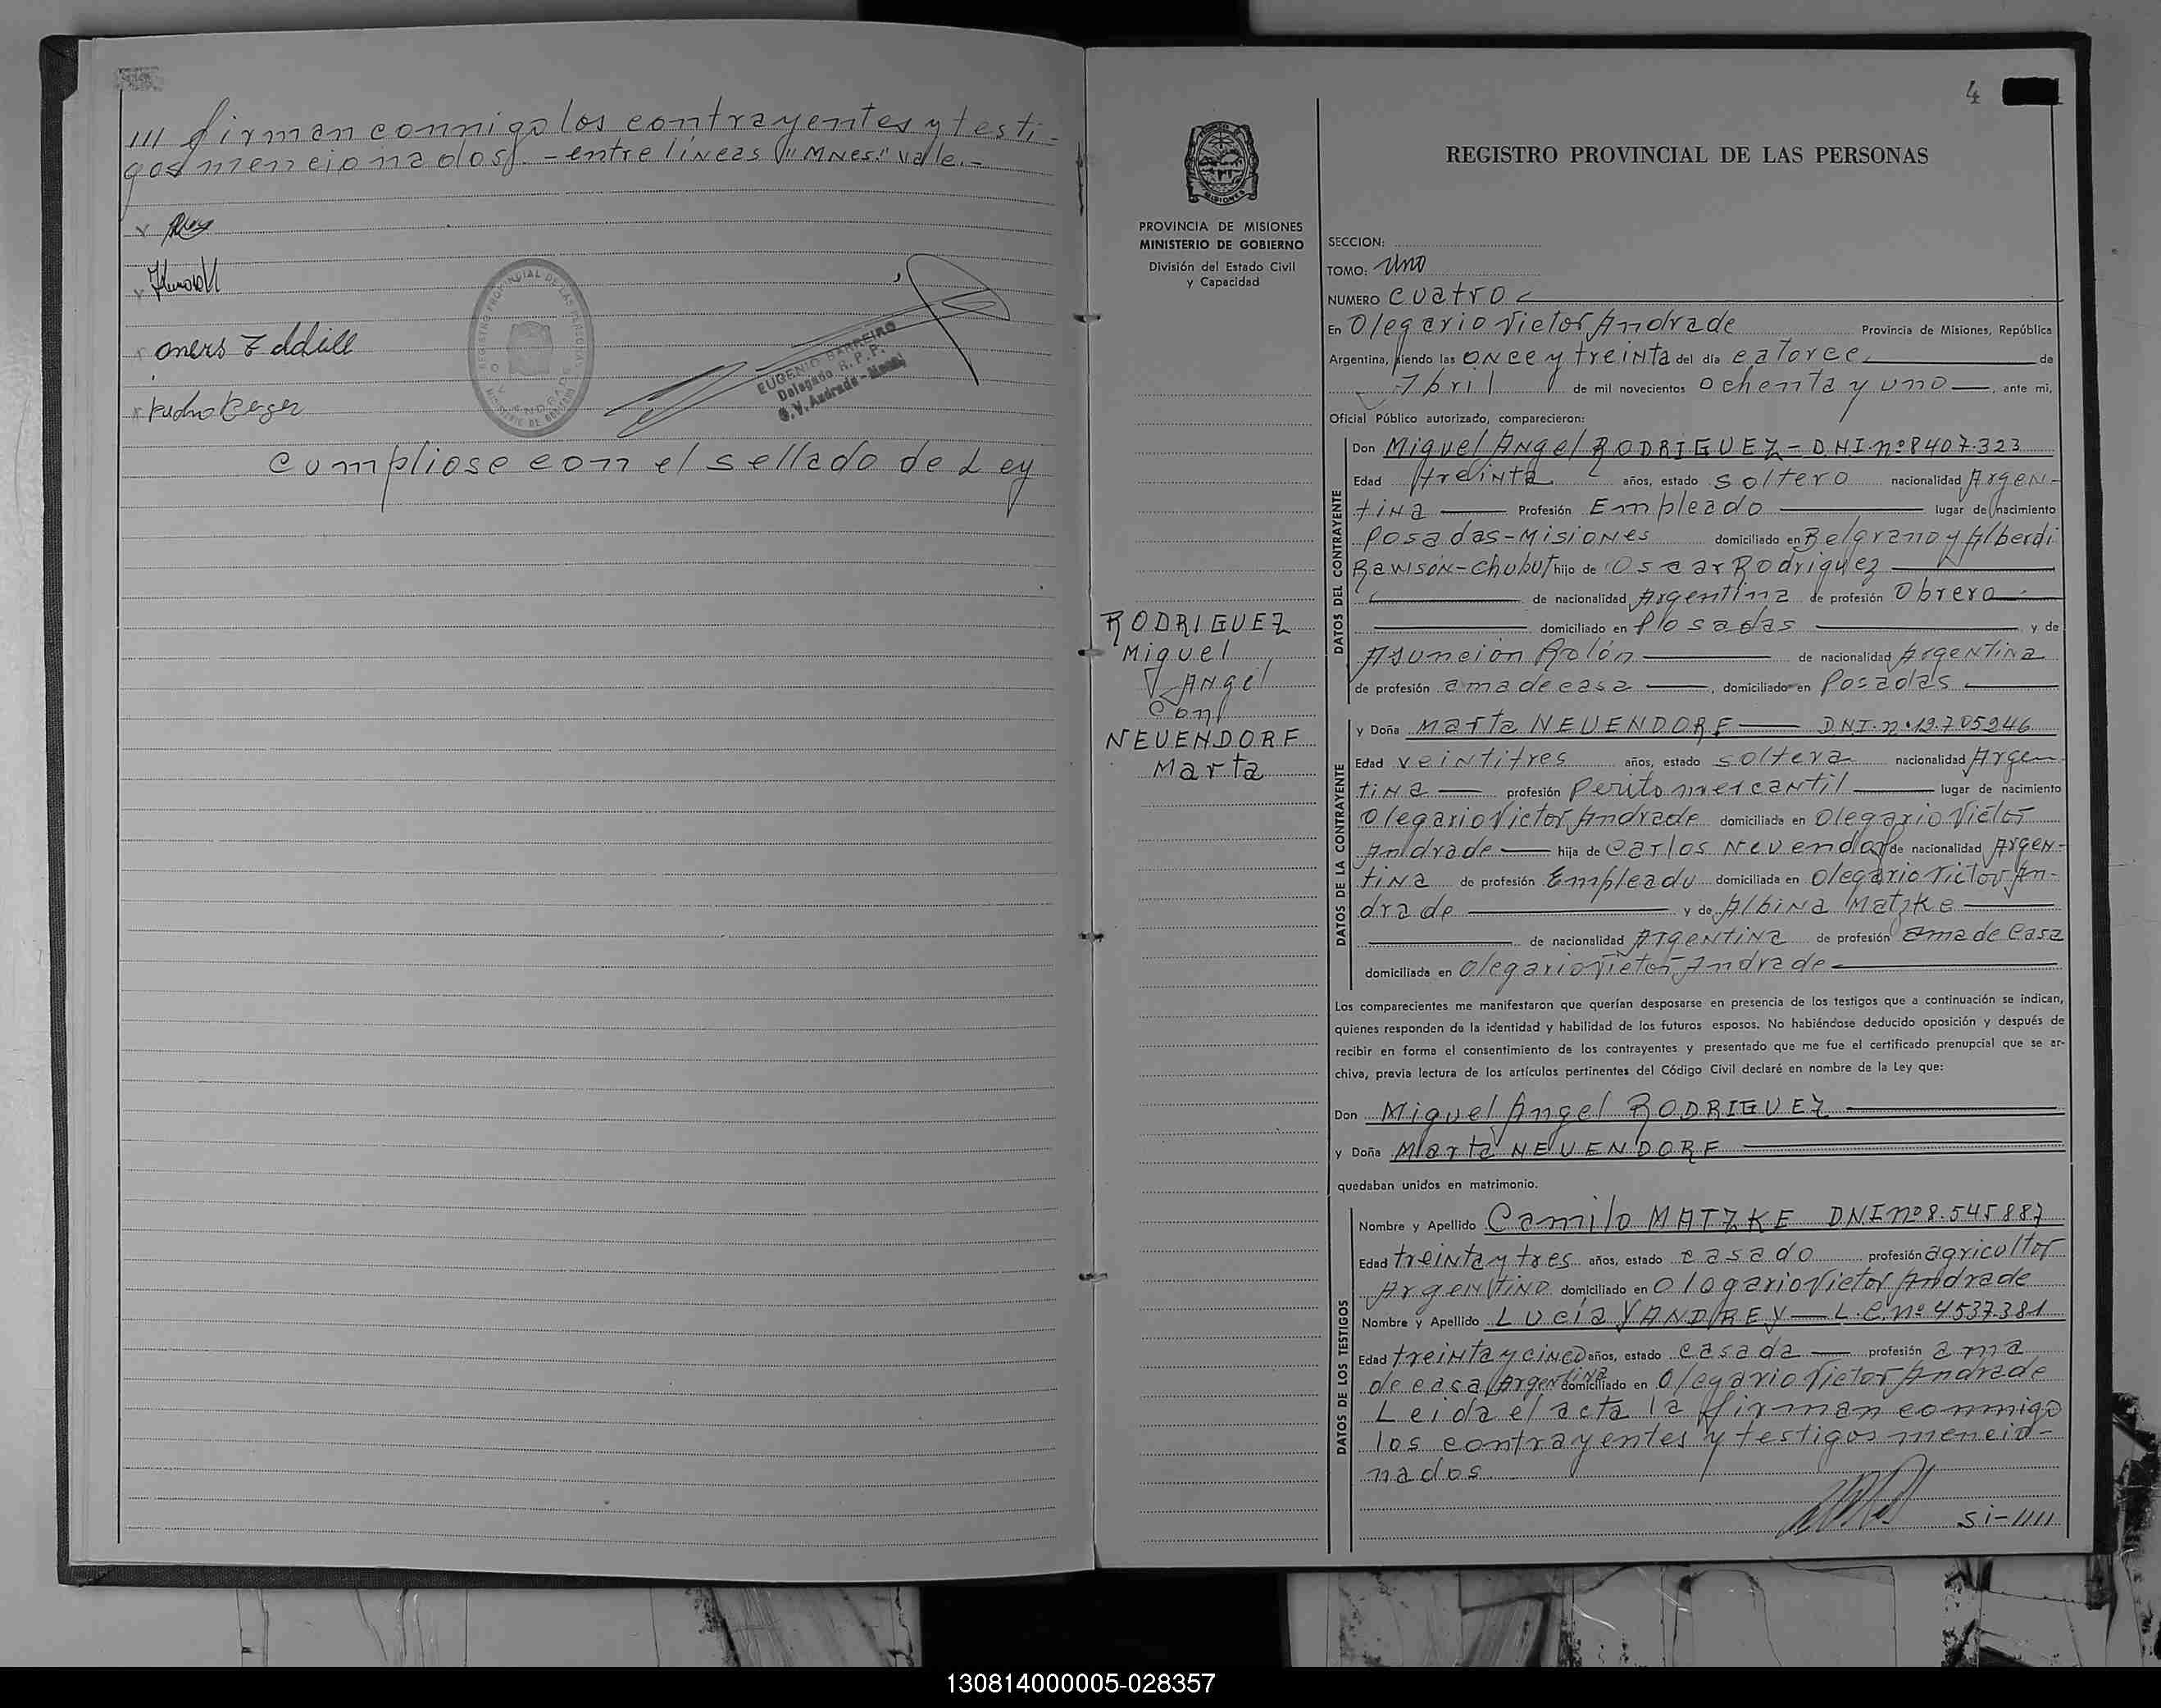 /// firman conmigo los contrayentes y testi-
gos mencionados. - entre líneas "MNES." vale.-
cumpliose con el sellado de Ley
EUGENIO BARREIRO
Delegado R.P.P.
O.V. Andrade - Mnes
4
REGISTRO PROVINCIAL DE LAS PERSONAS
PROVINCIA DE MISIONES
MINISTERIO DE GOBIERNO
División del Estado Civil
y Capacidad
RODRIGUEZ
Miguel
Angel
con
NEUENDORF
Marta
SECCION:
TOMO: Uno
NUMERO cuatro
En Olegario Victor Andrade Provincia de Misiones, República
Argentina, siendo las once y treinta del día catorce de
Abril de mil novecientos ochenta y uno, ante mi,
Oficial Público autorizado, comparecieron:
DATOS DEL CONTRAYENTE
Don Miguel Angel RODRIGUEZ - DNI. nº 8407.323
Edad treinta años, estado soltero nacionalidad Argen-
tina Profesión Empleado lugar de nacimiento
Posadas - Misiones domiciliado en Belgrano y Alberdi
Rawson - Chubut hijo de Oscar Rodriguez
de nacionalidad Argentina de profesión Obrero
domiciliado en Posadas y de
Asunción Rolón de nacionalidad Argentina
de profesión ama de casa, domiciliado en Posadas
DATOS DE LA CONTRAYENTE
y Doña Marta NEUENDORF DNI. nº 12.705246
Edad veintitres años, estado soltera nacionalidad Argen-
tina profesión Perito mercantil lugar de nacimiento
Olegario Victor Andrade domiciliada en Olegario Victor
Andrade hija de Carlos Neuendorf de nacionalidad Argen-
tina de profesión Empleado domiciliada en Olegario Victor An-
drade y de Albina Matzke
de nacionalidad Argentina de profesión ama de casa
domiciliada en Olegario Victor Andrade
Los comparecientes me manifestaron que querían desposarse en presencia de los testigos que a continuación se indican,
quienes responden de la identidad y habilidad de los futuros esposos. No habiéndose deducido oposición y después de
recibir en forma el consentimiento de los contrayentes y presentado que me fue el certificado prenupcial que se ar-
chiva, previa lectura de los artículos pertinentes del Código Civil declaré en nombre de la Ley que:
Don Miguel Angel RODRIGUEZ
y Doña Marta NEUENDORF
quedaban unidos en matrimonio.
DATOS DE LOS TESTIGOS
Nombre y Apellido Camilo MATZKE DNI nº 8.545887
Edad treinta y tres años, estado casado profesión agricultor
Argentino domiciliado en Olegario Victor Andrade
Nombre y Apellido Lucía YANDREY L.C. nº 4537.381
Edad treinta y cinco años, estado casada profesión ama
de casa Argentina domiciliado en Olegario Victor Andrade
Leida el acta la firman conmigo
los contrayentes y testigos mencio-
nados
Si-/////
130814000005-028357